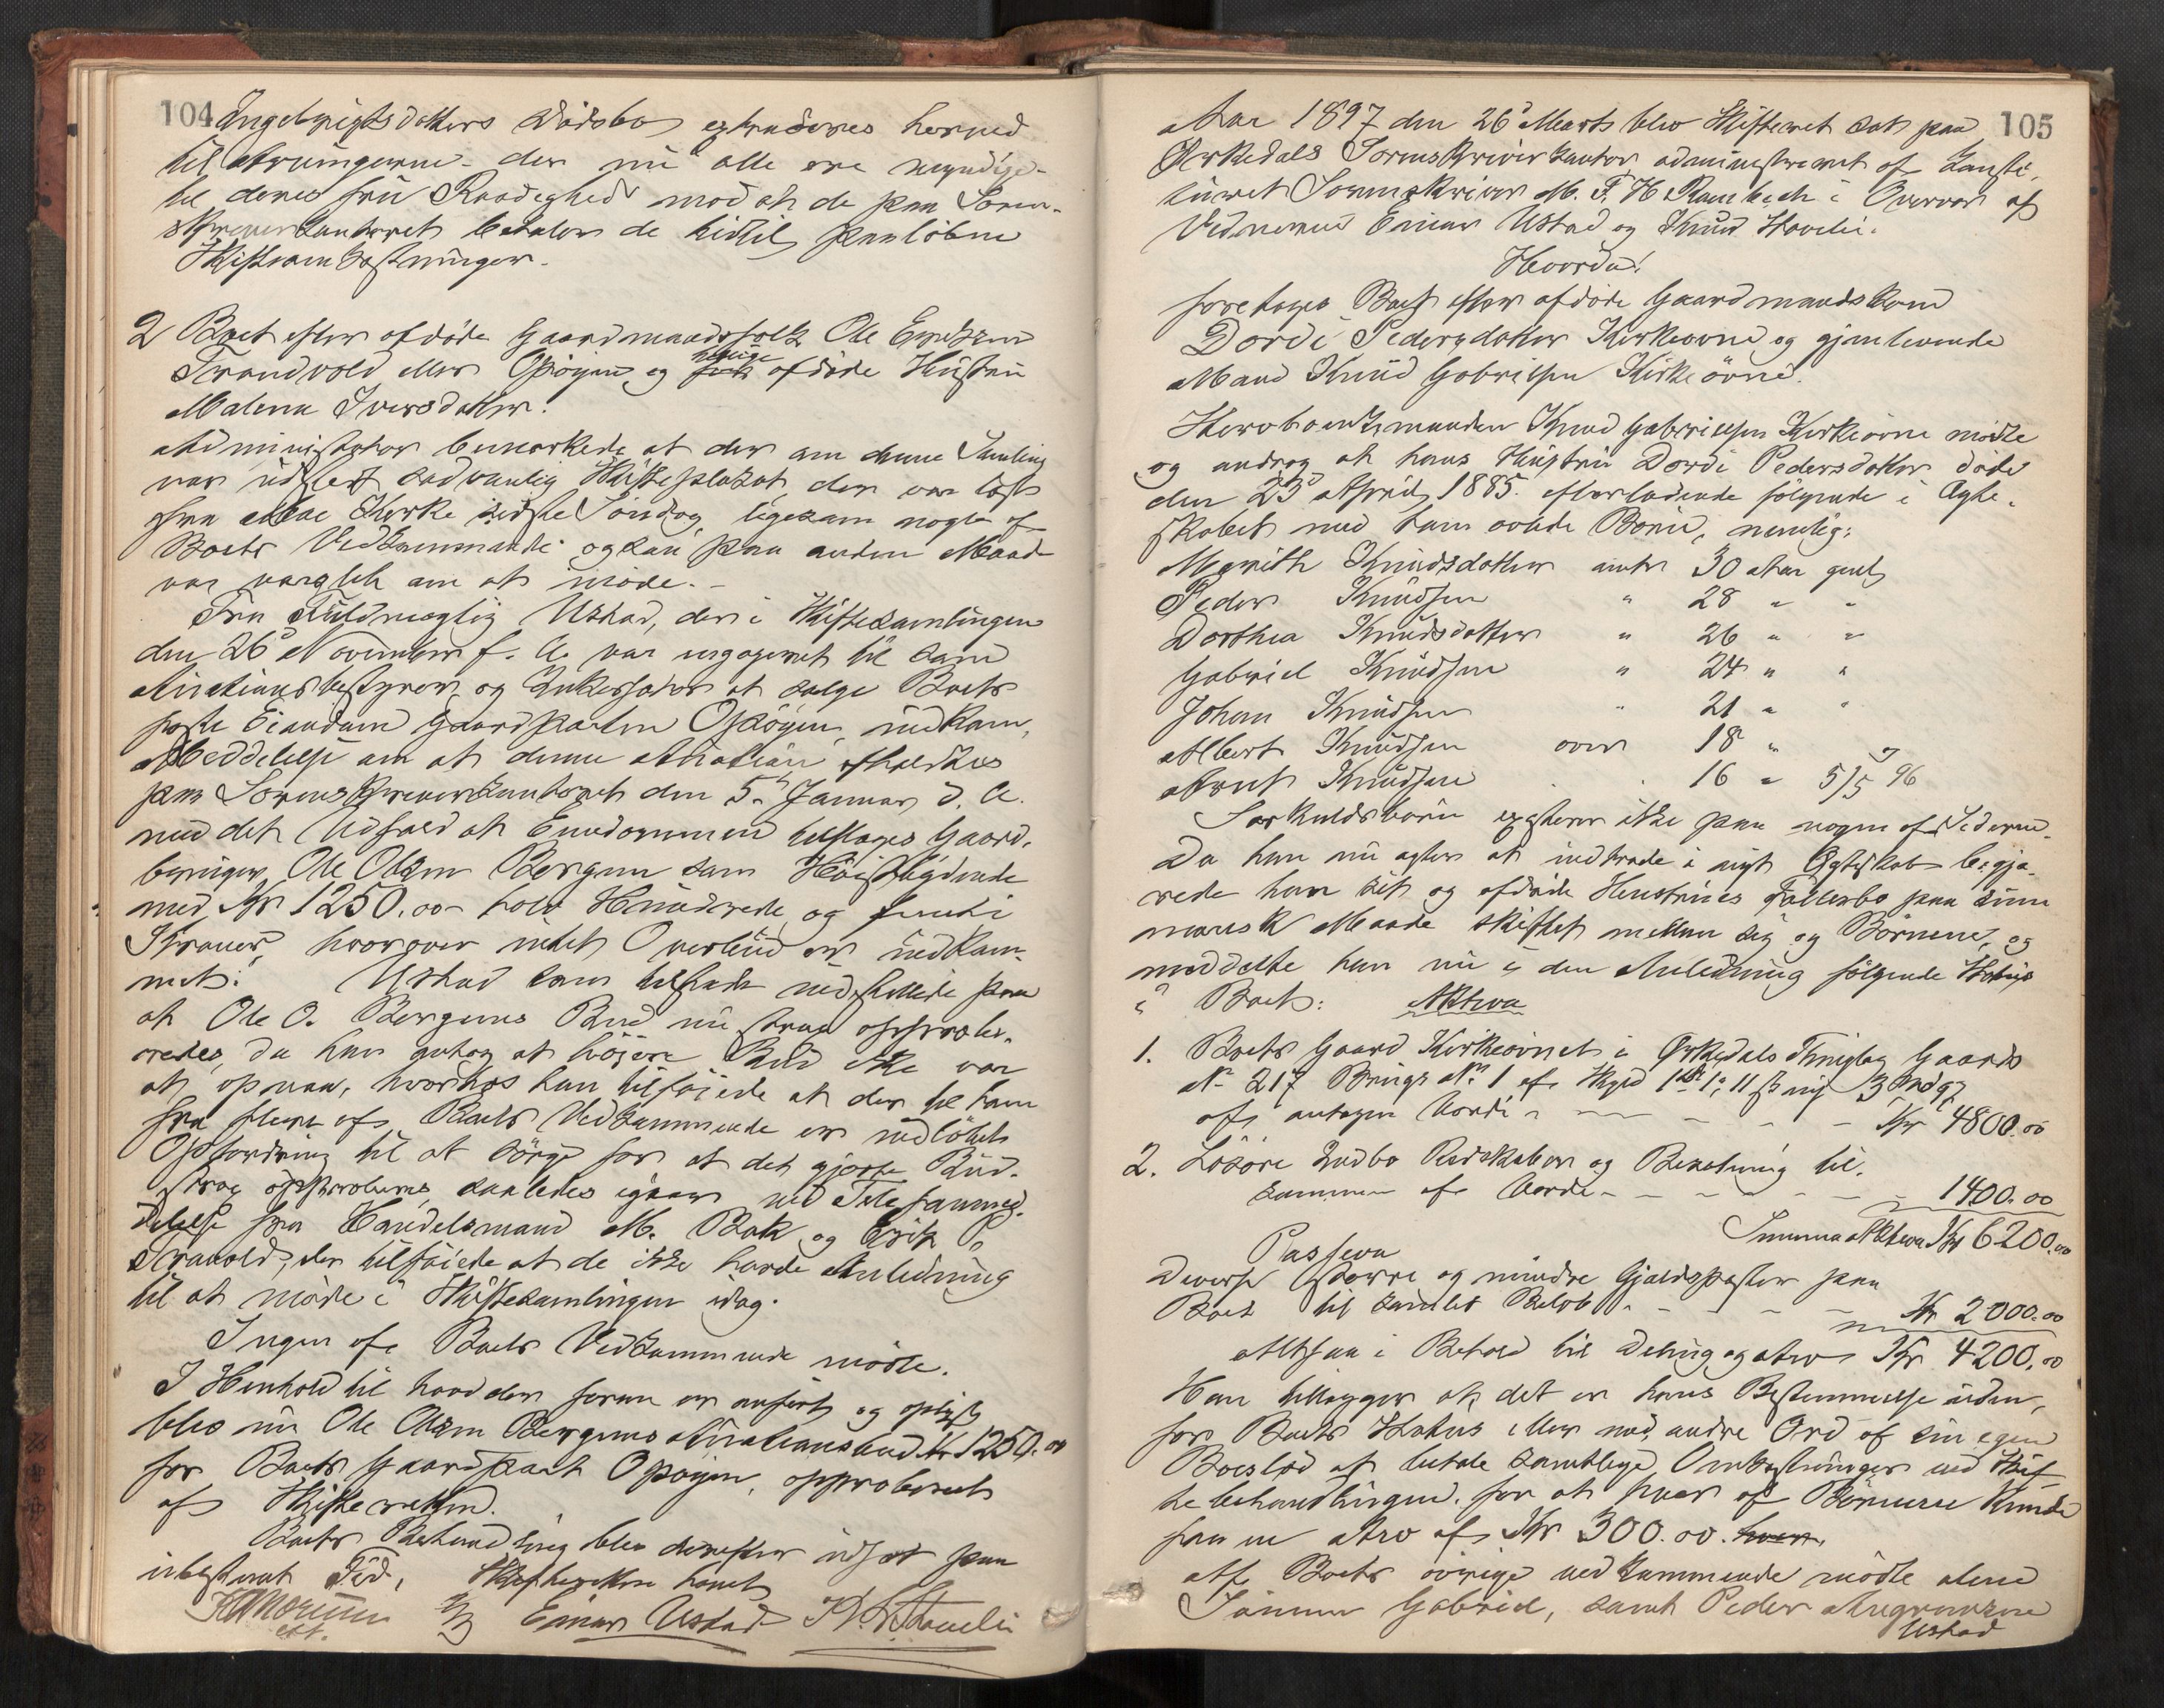 104
Ingebrigtsdatters Dødsbo extraderes herved
til Arvingerne – der nu alle ere myndige –
til deres frie Raadighed mod at de paa Soren-
skriverkontoret betaler de hidtil paaløbne
Skifteomkostninger.
2 Boet efter afdøde Gaardmandsfolk Ole Erichsen
Tranvold eller Opøien og forh. nylig afdøde Hustru
Malena Iversdatter.
Administrator bemærkede at der om denne Samling
var udstedt sædvanlig Skifteplakat, der var læst
fra Moe Kirke sidste Søndag, ligesom nogle af
Boets Vedkommende ogsaa paa anden Maade
var varslet om at møde. –
Fra Fuldmægtig Ustad, der i Skiftesamlingen
den 26de November f. A. var engageret til som
Auktionsbestyrer og Inkassator at sælge Boets
faste Eiendom Gaardparten Opøien, indkom
Meddelelse om at denne Auktion afholdtes
paa Sorenskriverkontoret den 5te Januar d. A.
med det Udfald at Eiendommen tilsloges Gaard-
bruger Ole Olsen Bergum som Høistbydende
med Kr 1250.00 – tolv Hundrede og femti
Kroner, hvorover intet Overbud er indkom-
met. Ustad som tilstede indstillede paa
at Ole O. Bergums Bud nu strax approbe-
redes, da han antog at høiere Bud ikke var
at opnaa, hvorhos han tilføiede at der til ham
fra flere af Boets Vedkommende er indløbet
Opfordring til at sørge for at det gjorte Bud
strax approberes, saaledes igaar ved Telefonmed-
delelse fra Handelsmand M. Bak og Erik O.
Tranvold, der tilføiede at de ikke havde Anledning
til at møde i Skiftesamlingen idag.
Ingen af Boets Vedkommende mødte.
I Henhold til hvad der foran er anført og oplyst
blev nu Ole Olsen Bergums Auktionsbud Kr 1250.00
for Boets Gaardpart Opøien, approberet
af Skifteretten.
Boets Behandling blev derefter udsat paa
ubestemt Tid. Skifteretten hævet
Einar Ustad K. K. Hovelie
105
Aar 1897 den 26de Marts blev Skifteret sat paa
Orkedals Sorenskriverkontor administreret af konsti-
tueret Sorenskriver M. F. H. Rambech i Overvær af
Vidnerne Einar Ustad og Knud Hovelie.
Hvorda:
foretoges Boet efter afdøde Gaardmandskone
Dordi Pedersdatter Kirkeøvne og gjenlevende
Mand Knud Gabrielsen Kirkeøvne.
Stervboenkemanden Knud Gabrielsen Kirkeøvne mødte
og androg at hans Hustru Dordi Pedersdatter døde
den 23de April 1885 efterladende følgende i Ægte-
skabet med ham avlede Børn, nemlig:
Marith Knudsdatter omtr 30 Aar gml
Peder Knudsen " 28 " "
Dorthea Knudsdatter " 26 " "
Gabriel Knudsen " 24 " "
Johan Knudsen " 21 " "
Albert Knudsen over 18 "
Arnt Knudsen . . 16 " 5/5 96
Særkuldsbørn existerer ikke paa nogen af Siderne.
Da han nu agter at indtræde i nyt Ægteskab begjæ-
rede han sit og afdøde Hustrues Fællesbo paa sum-
marisk Maade skiftet mellem sig og Børnene, og
meddelte han nu i den Anledning følgende Status
i Boet: Aktiva
1. Boets Gaard Kirkeøvnet i Orkedals Thinglag Gaards
No 217 Brugs No 1 af Skyld 1 dl 1 ort 11 ß ny 3
af antagen Værdi – – – – Kr 4800.00
2. Løsøre Indbo Redskaber og Besætning til-
sammen af Værdi – – – – – 1400.00
Summa Aktiva Kr 6200.00
Passiva
Diverse større og mindre Gjældsposter paa
Boet til samlet Beløb – – – – Kr 2000.00
Altsaa i Behold til Deling og Arv Kr 4200.00
Han tillægger at det er hans Bestemmelse uden-
for Boets Status eller med andre Ord af sin egen
Boeslod at betale samtlige Omkostninger ved Skif-
tebehandlingen, for at hver af Børnene kunde
faa en Arv af Kr 300.00. hver.
Af Boets øvrige Vedkommende mødte alene
Sønnen Gabriel, samt Peder
Ustad